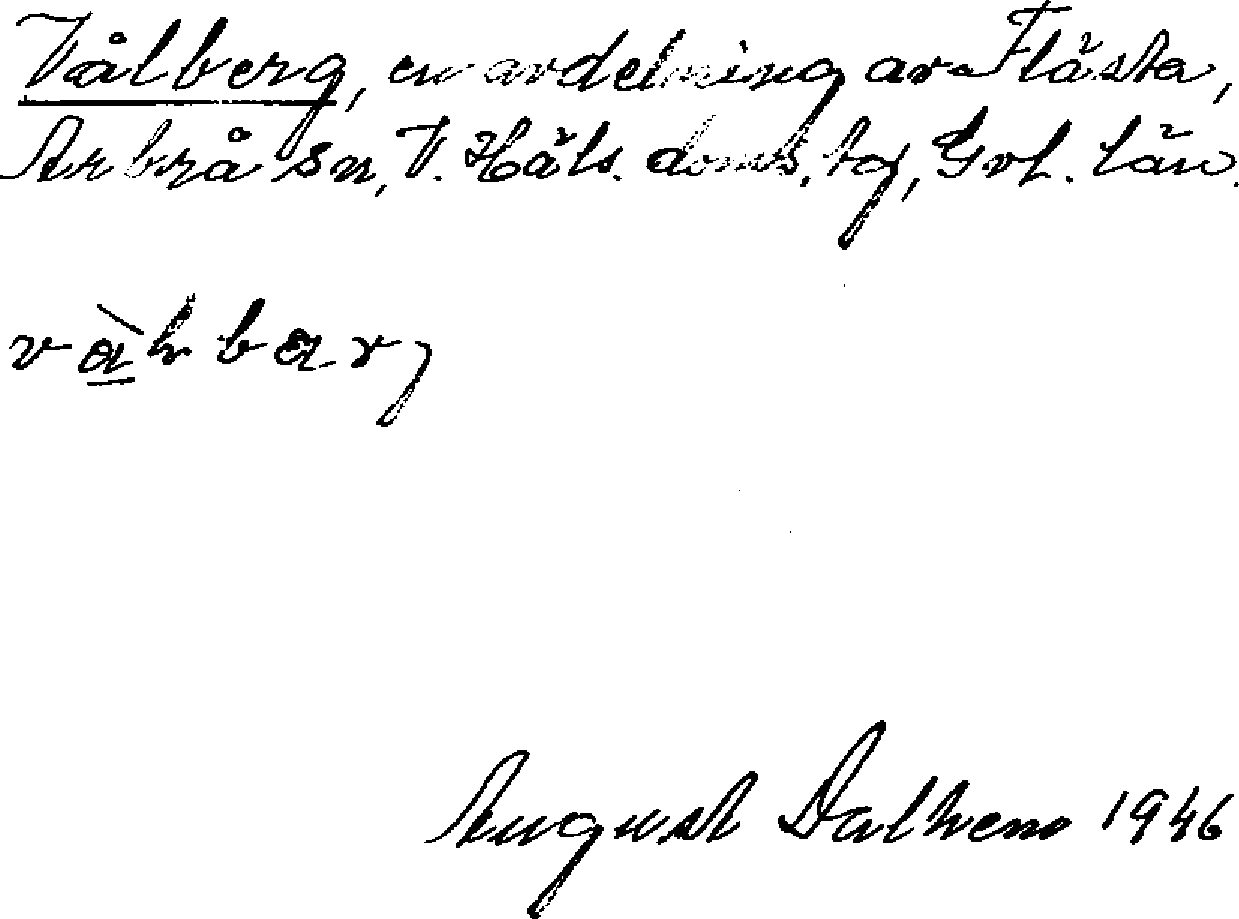 Vålberg, en avdelning av Flästa,
Arbrå sn, V. Häls. doms. tg, Gvl. län.
August Dalhem 1946